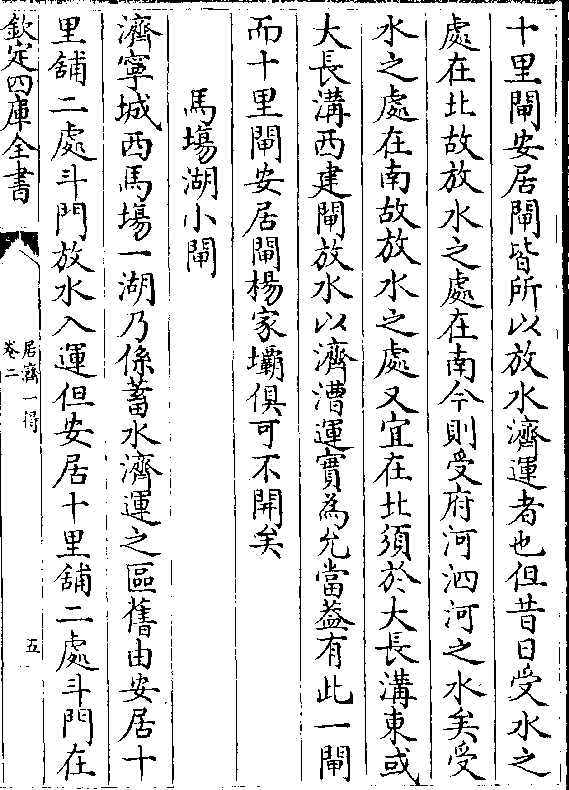 十里閘安居閘皆所以放水濟運者也但昔日受水之
處在北故放水之處在南今則受府河泗河之水矣受
水之處在南故放水之處又宜在北須於大長溝東或
大長溝西建閘放水以濟漕運實為允當葢有此一閘
而十里閘安居閘楊家壩俱可不開矣
馬塲湖小閘
濟寧城西馬塲一湖乃係蓄水濟運之區舊由安居十
里舖二處斗門放水入運但安居十里舖二處斗門在
欽定四庫全書
居濟一得
卷二
五